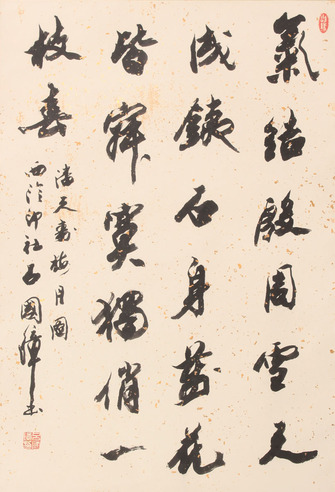 氣結殷周雪天
成鐵石身萬花
皆寂寞獨俏一
枝春
潘天壽梅月圖
西泠印社呂國璋書